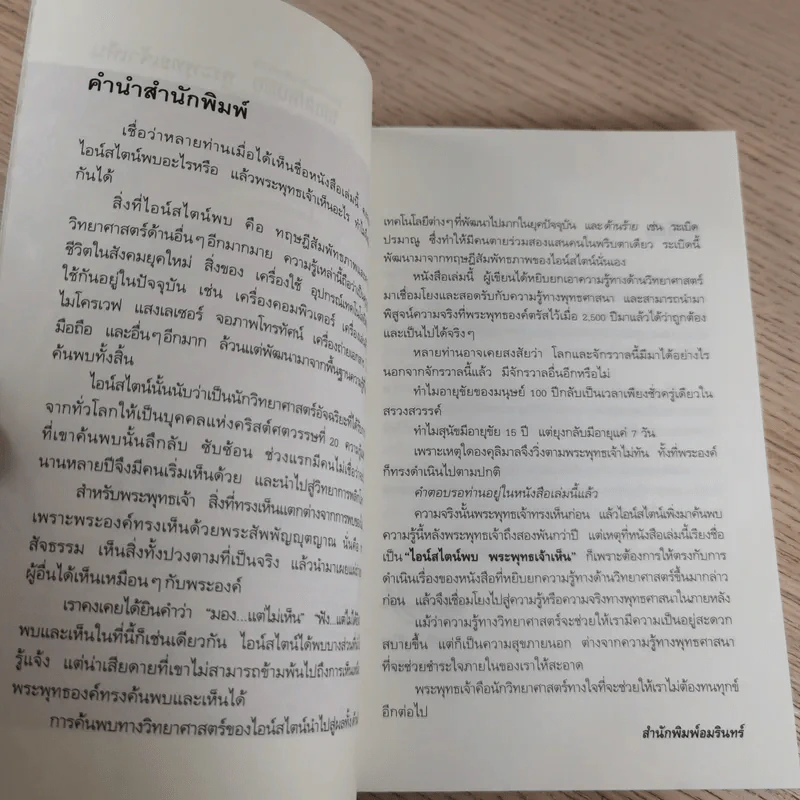 คำนำสำนักพิมพ์
เชื่อว่าหลายท่านเมื่อได้เห็นชื่อหนังสือเล่มนี้
ไอน์สไตน์พบอะไรหรือ แล้วพระพุทธเจ้าเห็นอะไร
กันได้
สิ่งที่ไอน์สไตน์พบ คือ ทฤษฎีสัมพัทธภาพ
วิทยาศาสตร์ด้านอื่นๆอีกมากมาย ความรู้เหล่านี้ถือว่าเป็น
ชีวิตในสังคมยุคใหม่ สิ่งของ เครื่องใช้ อุปกรณ์เทคโนโลยี
ใช้กันอยู่ในปัจจุบัน เช่น เครื่องคอมพิวเตอร์
ไมโครเวฟ แสงเลเซอร์ จอภาพโทรทัศน์ เครื่องถ่ายเอกสาร
มือถือ และอื่นๆอีกมาก ล้วนแต่พัฒนามาจากพื้นฐานความรู้
ค้นพบทั้งสิ้น
ไอน์สไตน์นั้นนับว่าเป็นนักวิทยาศาสตร์อัจฉริยะที่ได้
จากทั่วโลกให้เป็นบุคคลแห่งคริสต์ศตวรรษที่ 20 ความรู้
ที่เขาค้นพบนั้นลึกลับ ซับซ้อน ช่วงแรกมีคนไม่เชื่อ
นานหลายปีจึงมีคนเริ่มเห็นด้วย และนำไปสู่วิทยาการ
สำหรับพระพุทธเจ้า สิ่งที่ทรงเห็นแตกต่างจากการพบของ
เพราะพระองค์ทรงเห็นด้วยพระสัพพัญญุตญาณ นั่นคือ
สัจธรรม เห็นสิ่งทั้งปวงตามที่เป็นจริง แล้วนำมาเผยแผ่
ผู้อื่นได้เห็นเหมือนๆกับพระองค์
เราคงเคยได้ยินคำว่า "มอง...แต่ไม่เห็น" "ฟัง...แต่ไม่ได้ยิน
พบและเห็นในที่นี้ก็เช่นเดียวกัน ไอน์สไตน์ได้พบบางส่วน
รู้แจ้ง แต่น่าเสียดายที่เขาไม่สามารถข้ามพ้นไปถึงการเห็น
พระพุทธองค์ทรงค้นพบและเห็นได้
การค้นพบทางวิทยาศาสตร์ของไอน์สไตน์นำไปสู่ผลทั้ง
เทคโนโลยีต่างๆที่พัฒนาไปมากในยุคปัจจุบัน และด้านร้าย เช่น ระเบิด
ปรมาณู ซึ่งทำให้มีคนตายร่วมสองแสนคนในพริบตาเดียว ระเบิดนี้
พัฒนามาจากทฤษฎีสัมพัทธภาพของไอน์สไตน์นั่นเอง
หนังสือเล่มนี้ ผู้เขียนได้หยิบยกเอาความรู้ทางด้านวิทยาศาสตร์
มาเชื่อมโยงและสอดรับกับความรู้ทางพุทธศาสนา และสามารถนำมา
พิสูจน์ความจริงที่พระพุทธองค์ตรัสไว้เมื่อ 2,500 ปีมาแล้วได้ว่าถูกต้อง
และเป็นไปได้จริงๆ
หลายท่านอาจเคยสงสัยว่า โลกและจักรวาลนี้มีมาได้อย่างไร
นอกจากจักรวาลนี้แล้ว มีจักรวาลอื่นอีกหรือไม่
ทำไมอายุขัยของมนุษย์ 100 ปีกลับเป็นเวลาเพียงชั่วครู่เดียวใน
สรวงสวรรค์
ทำไมสุนัขมีอายุขัย 15 ปี แต่ยุงกลับมีอายุแค่ 7 วัน
เพราะเหตุใดองคุลิมาลจึงวิ่งตามพระพุทธเจ้าไม่ทัน ทั้งที่พระองค์
ก็ทรงดำเนินไปตามปกติ
คำตอบรอท่านอยู่ในหนังสือเล่มนี้แล้ว
ความจริงนั้นพระพุทธเจ้าทรงเห็นก่อน แล้วไอน์สไตน์เพิ่งมาค้นพบ
ความรู้นี้หลังพระพุทธเจ้าถึงสองพันกว่าปี แต่เหตุที่หนังสือเล่มนี้เรียงชื่อ
เป็น "ไอน์สไตน์พบ พระพุทธเจ้าเห็น" ก็เพราะต้องการให้ตรงกับการ
ดำเนินเรื่องของหนังสือที่หยิบยกความรู้ทางด้านวิทยาศาสตร์ขึ้นมากล่าว
ก่อน แล้วจึงเชื่อมโยงไปสู่ความรู้หรือความจริงทางพุทธศาสนาในภายหลัง
แม้ว่าความรู้ทางวิทยาศาสตร์จะช่วยให้เรามีความเป็นอยู่สะดวก
สบายขึ้น แต่ก็เป็นความสุขภายนอก ต่างจากความรู้ทางพุทธศาสนา
ที่จะช่วยชำระใจภายในของเราให้สะอาด
พระพุทธเจ้าคือนักวิทยาศาสตร์ทางใจที่จะช่วยให้เราไม่ต้องทนทุกข์
อีกต่อไป
สำนักพิมพ์อมรินทร์